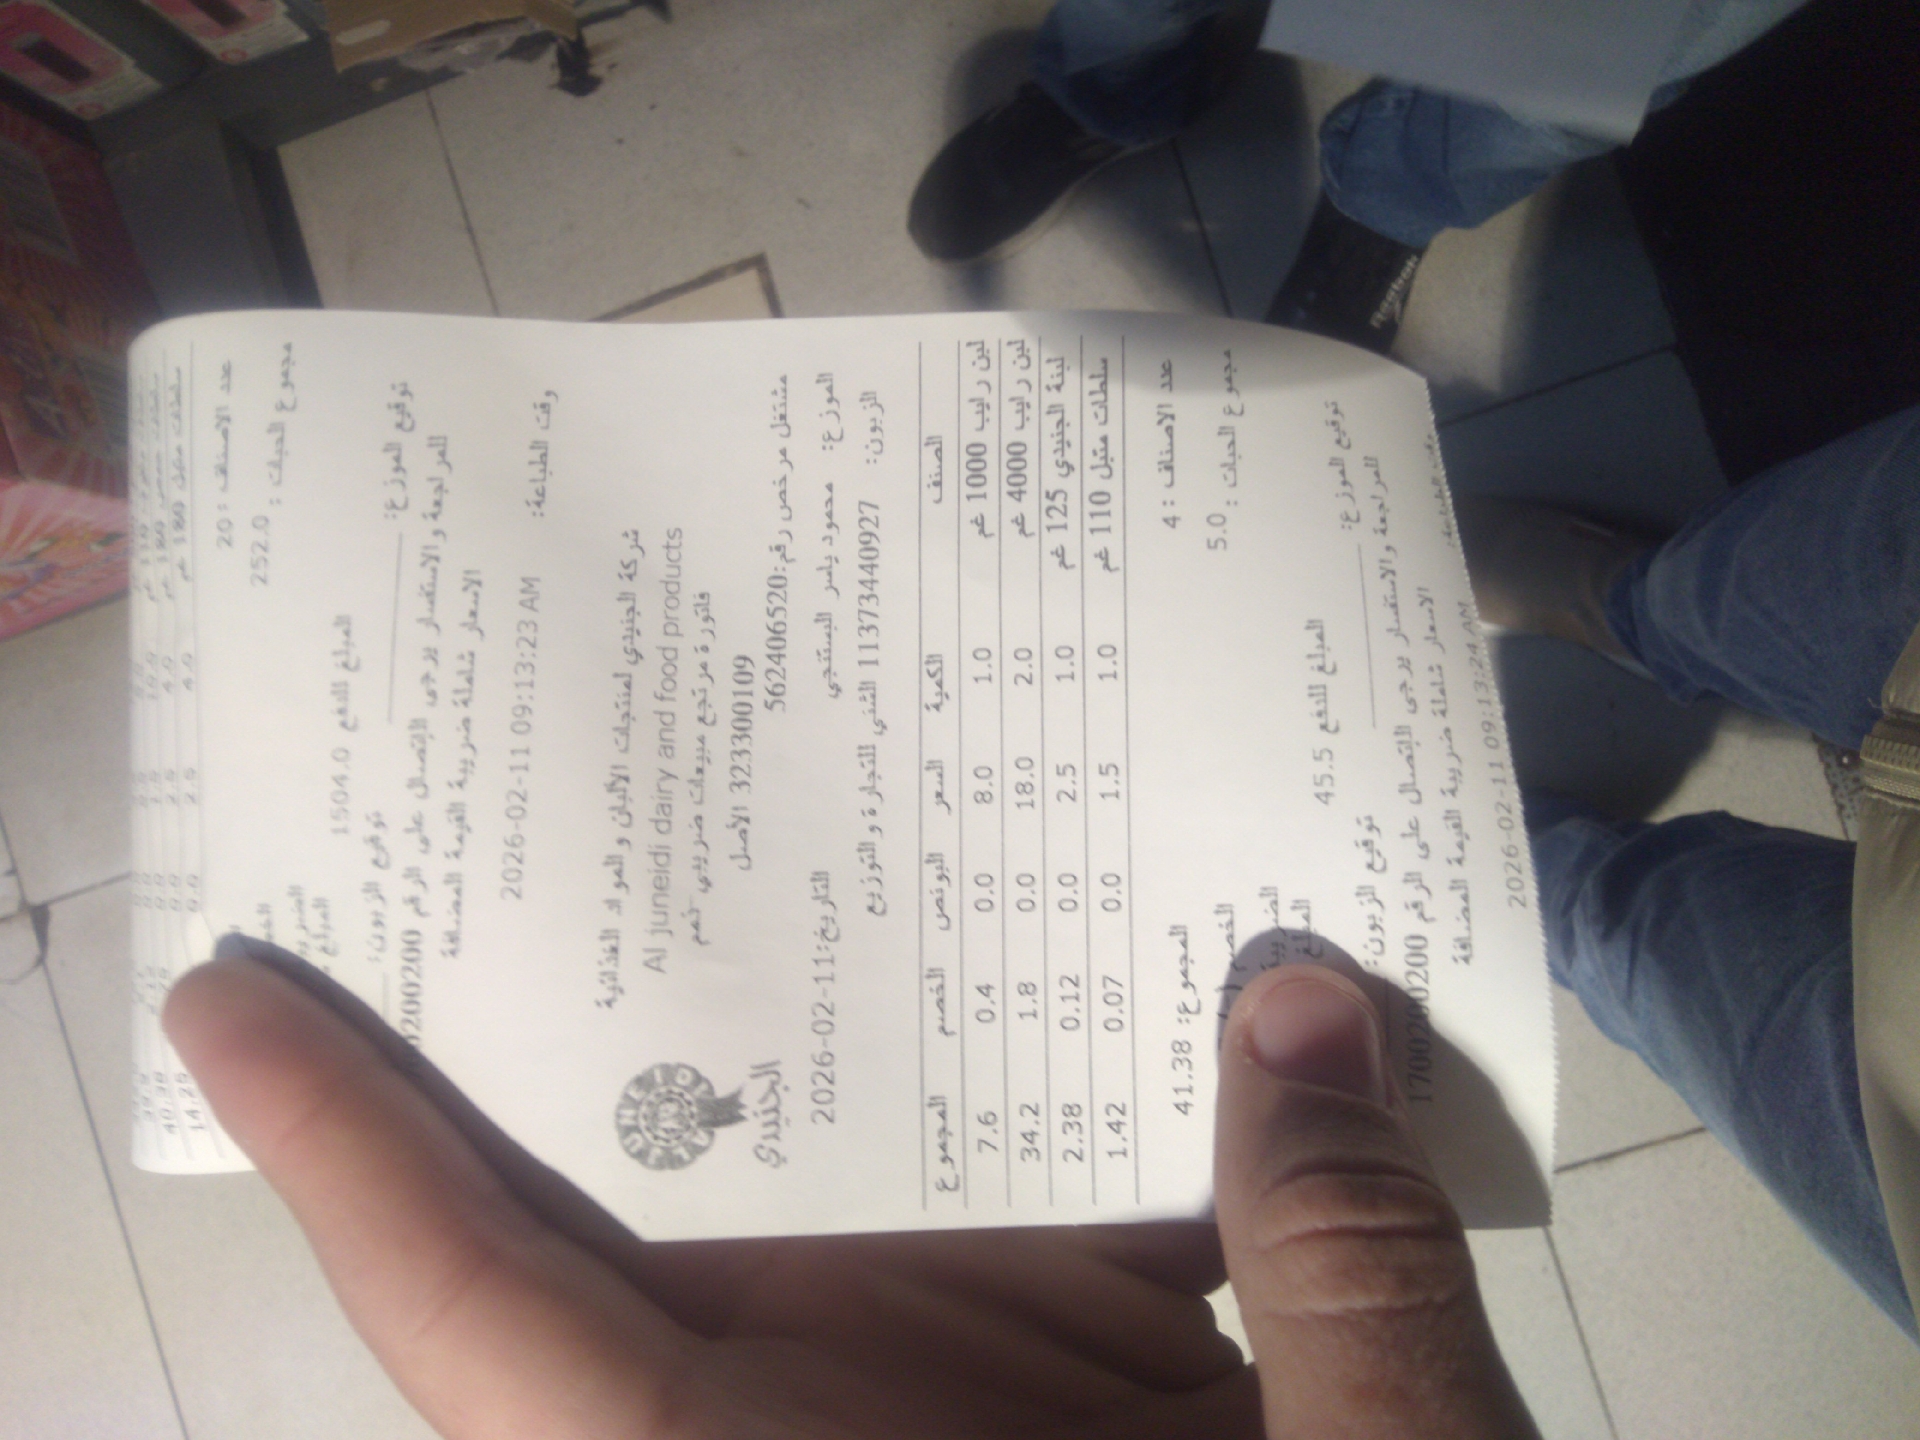 عدد الاصناف : 20
مجموع الحبات : 252.0
المبلغ للدفع 1504.0
توقيع الموزع: توقيع الزبون:
للمراجعة والاستفسار يرجى الاتصال على الرقم
الاسعار شاملة ضريبة القيمة المضافة
وقت الطباعة: 2026-02-11 09:13:23 AM
شركة الجنيدي لمنتجات الألبان و المواد الغذائية
Al juneidi dairy and food products
فاتورة مرتجع مبيعات ضريبي
323300109 الأصل
مشتغل مرخص رقم:562406520
الجنيدي
الموزع: محمود ياسر البستنجي التاريخ:2026-02-11
الزبون: 1137344092 الشني للتجارة و التوزيع
الصنف الكمية السعر البونص الخصم المجموع
لبن رايب 1000 غم 1.0 8.0 0.0 0.4 7.6
لبن رايب 4000 غم 2.0 18.0 0.0 1.8 34.2
لبنة الجنيدي 125 غم 1.0 2.5 0.0 0.12 2.38
سلطات متبل 110 غم 1.0 1.5 0.0 0.07 1.42
عدد الاصناف : 4 المجموع: 41.38
مجموع الحبات : 5.0
المبلغ للدفع 45.5
توقيع الموزع: توقيع الزبون:
للمراجعة والاستفسار يرجى الاتصال على الرقم 1700200200
الاسعار شاملة ضريبة القيمة المضافة
2026-02-11 09:13:24 AM
Reebok